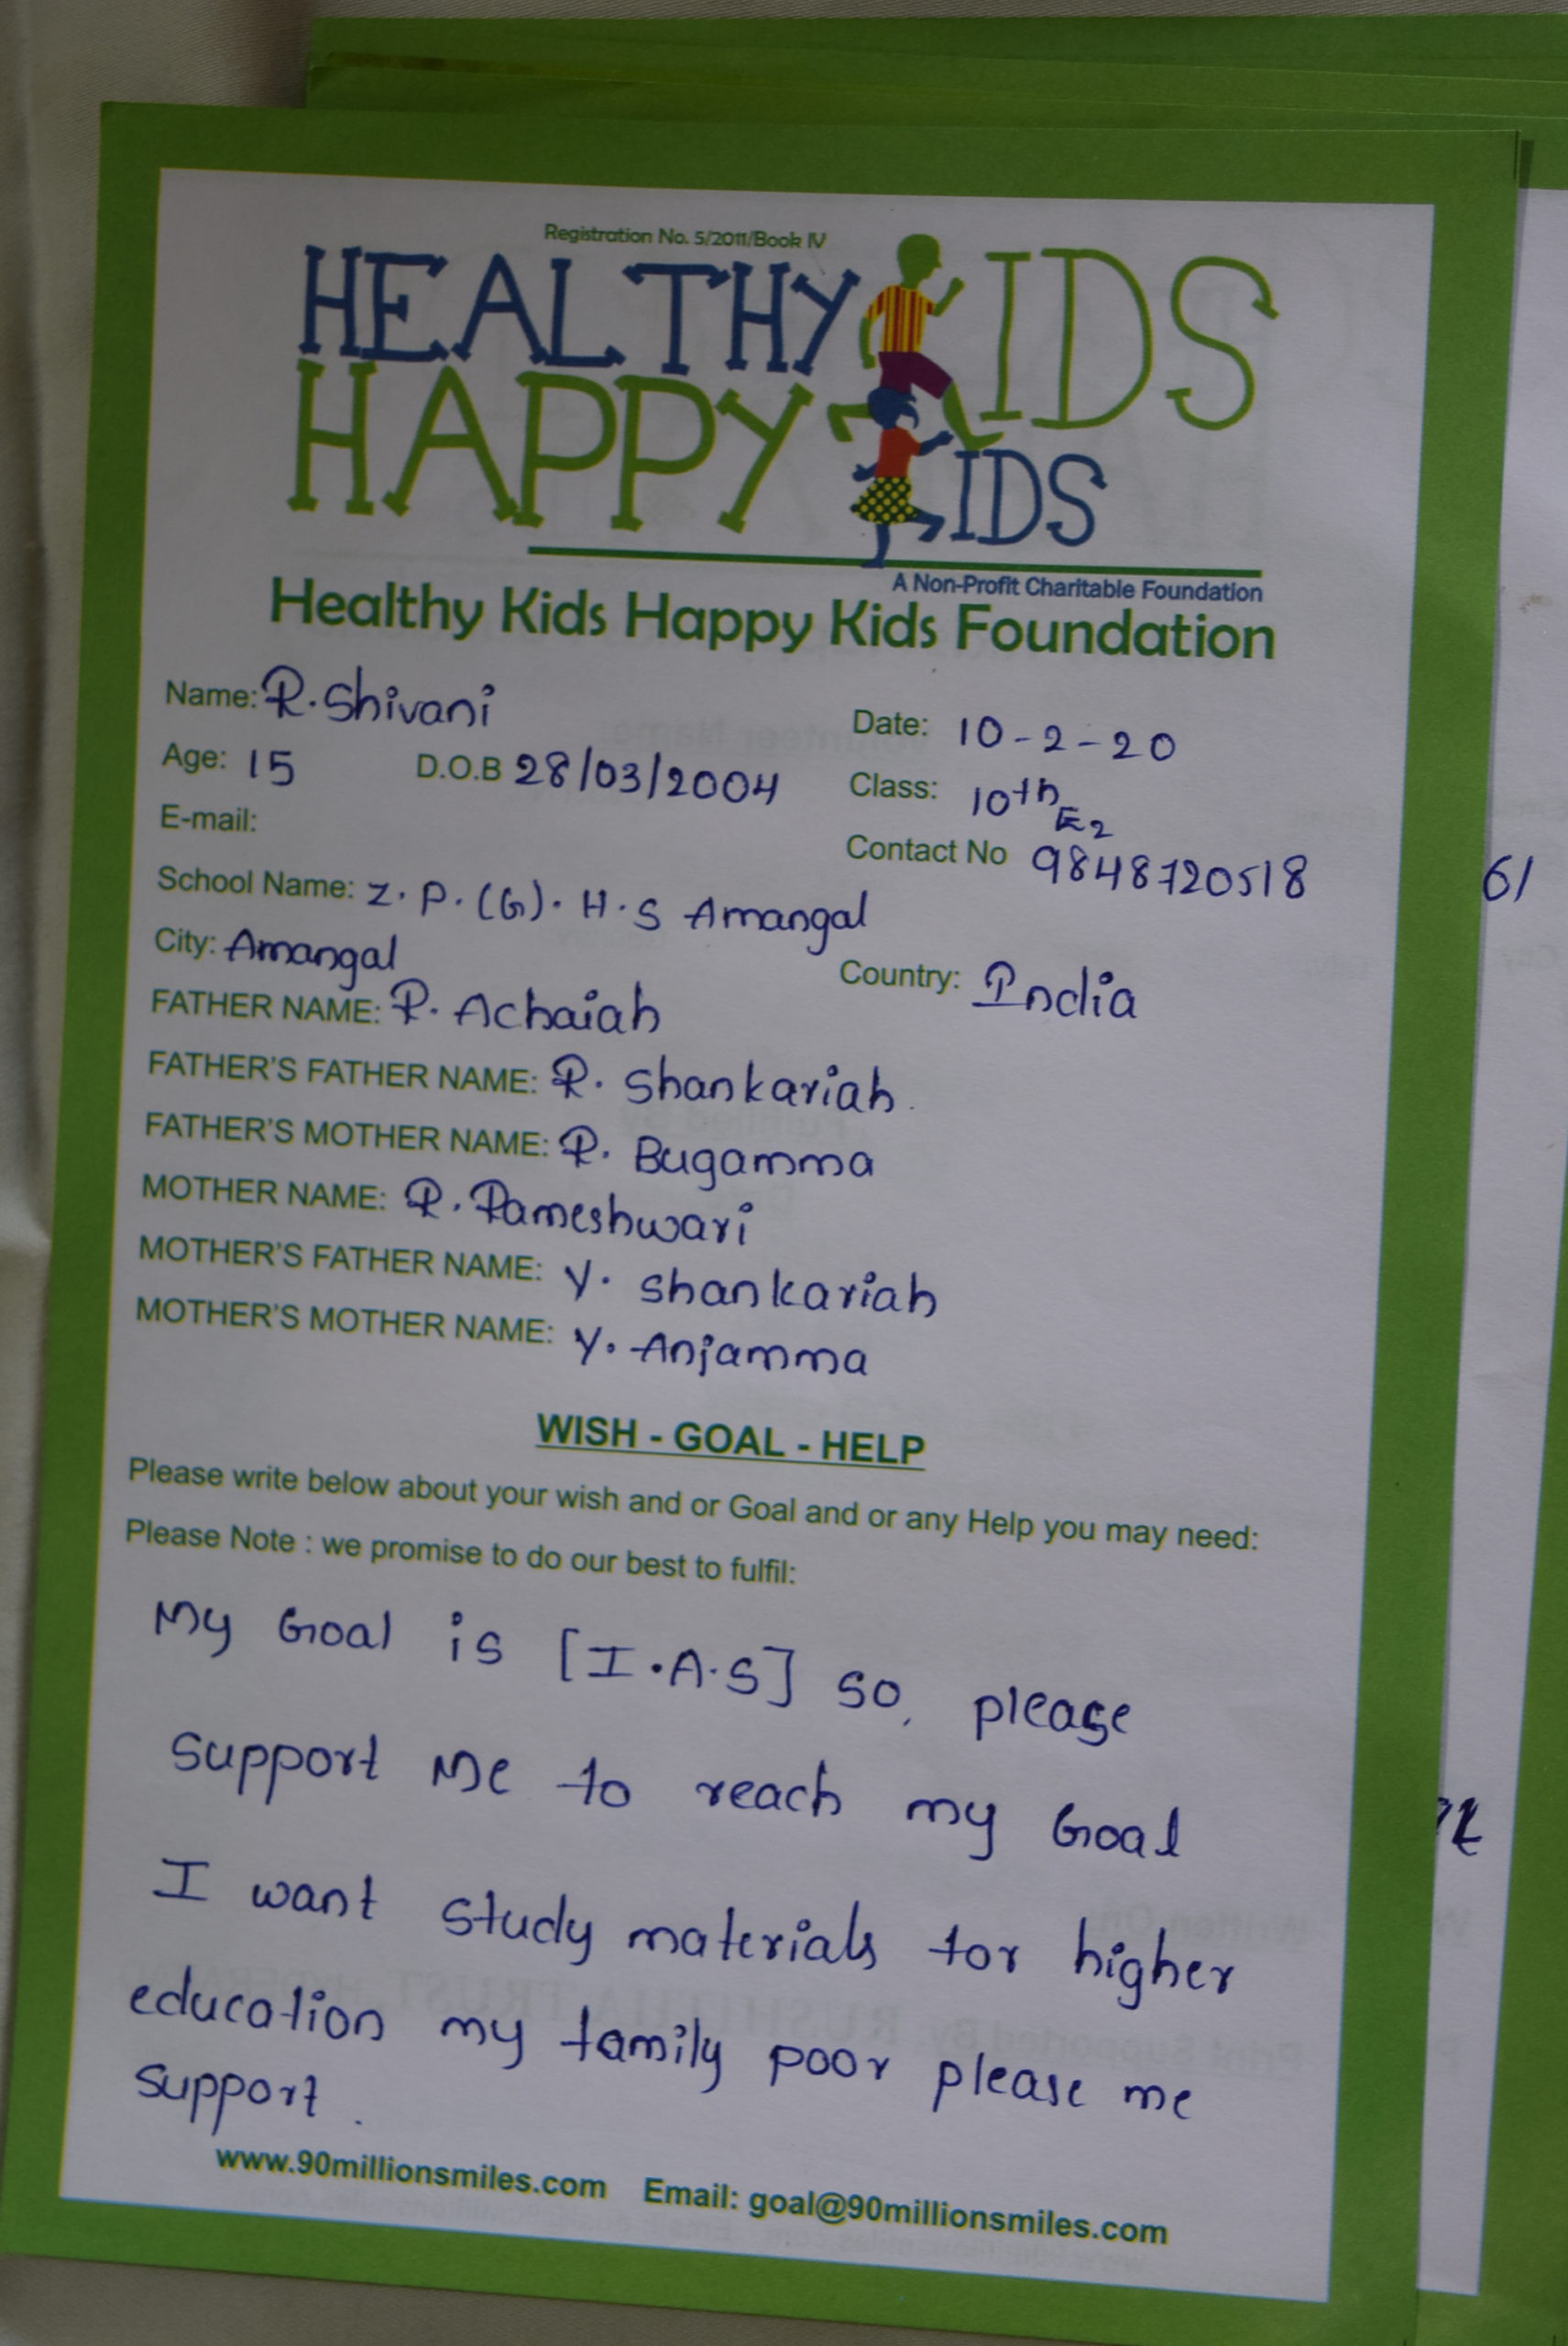 Registration No. 5/2011/Book IV
HEALTHY KIDS
HAPPY KIDS
A Non-Profit Charitable Foundation
Healthy Kids Happy Kids Foundation
Name: R. Shivani Date: 10-2-20
Age: 15 D.O.B 28/03/2004 Class: 10th E2
E-mail: Contact No 9848720518
School Name: Z. P. (G). H. S Amangal
City: Amangal Country: India
FATHER NAME: R. Achaiah
FATHER'S FATHER NAME: R. Shankariah
FATHER'S MOTHER NAME: R. Bugamma
MOTHER NAME: R. Rameshwari
MOTHER'S FATHER NAME: Y. Shankariah
MOTHER'S MOTHER NAME: Y. Anjamma
WISH - GOAL - HELP
Please write below about your wish and or Goal and or any Help you may need:
Please Note : we promise to do our best to fulfil:
My Goal is [I.A.S] so, please
support Me to reach my Goal
I want study materials for higher
education my family poor please me
support.
www.90millionsmiles.com Email: goal@90millionsmiles.com
61